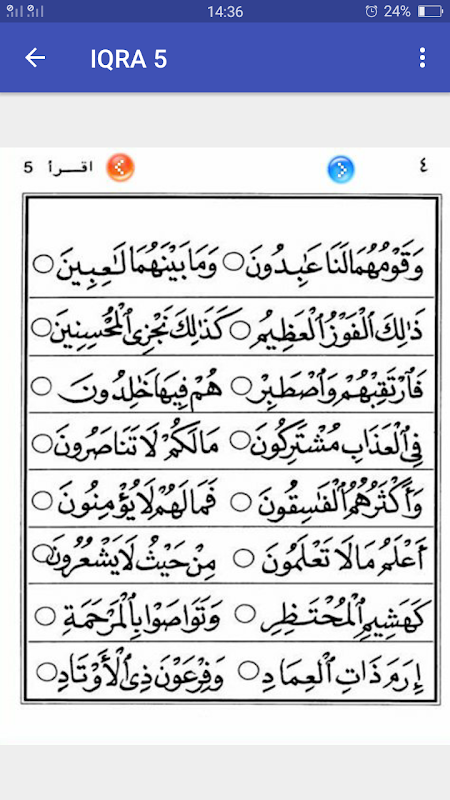 14:36 24%
IQRA 5
اقــرأ 5 ٤
وَقَوْمُهُمَا لَنَا عَٰبِدُونَ ○ وَمَا بَيْنَهُمَا لَٰعِبِينَ ○
ذَٰلِكَ ٱلْفَوْزُ ٱلْعَظِيمُ ○ كَذَٰلِكَ نَجْزِى ٱلْمُحْسِنِينَ ○
فَٱرْتَقِبْهُمْ وَٱصْطَبِرْ ○ هُمْ فِيهَا خَٰلِدُونَ ○
فِى ٱلْعَذَابِ مُشْتَرِكُونَ ○ مَالَكُمْ لَا تَنَاصَرُونَ ○
وَأَكْثَرُهُمُ ٱلْفَٰسِقُونَ ○ فَمَالَهُمْ لَا يُؤْمِنُونَ ○
أَعْلَمُ مَا لَا تَعْلَمُونَ ○ مِنْ حَيْثُ لَا يَشْعُرُونَ ○
كَهَشِيمِ ٱلْمُحْتَظِرِ ○ وَتَوَاصَوْا بِٱلْمَرْحَمَةِ ○
إِرَمَ ذَاتِ ٱلْعِمَادِ ○ وَفِرْعَوْنَ ذِى ٱلْأَوْتَادِ ○